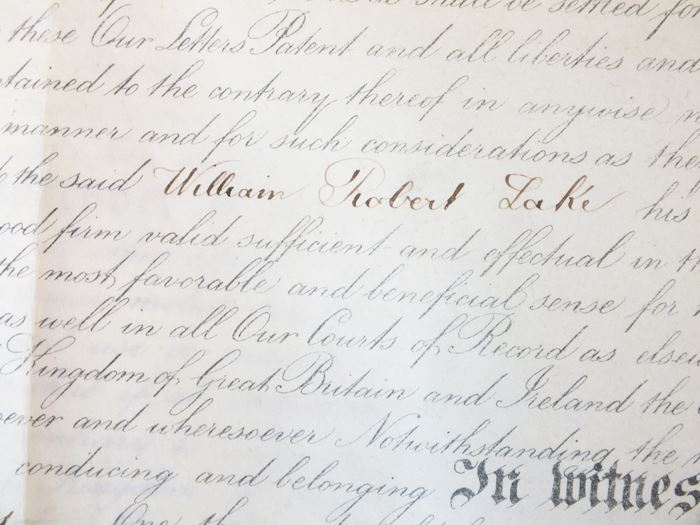 shall be settled for
these Our Letters Patent and all liberties and
tained to the contrary thereof in anywise
manner and for such considerations as the
the said William Robert Lake his
ood firm valid sufficient and effectual in th
the most favorable and beneficial sense for
as well in all Our Courts of Record as elsew
Kingdom of Great Britain and Ireland the
oever and wheresoever Notwithstanding the
conducing and belonging In witnes
One th